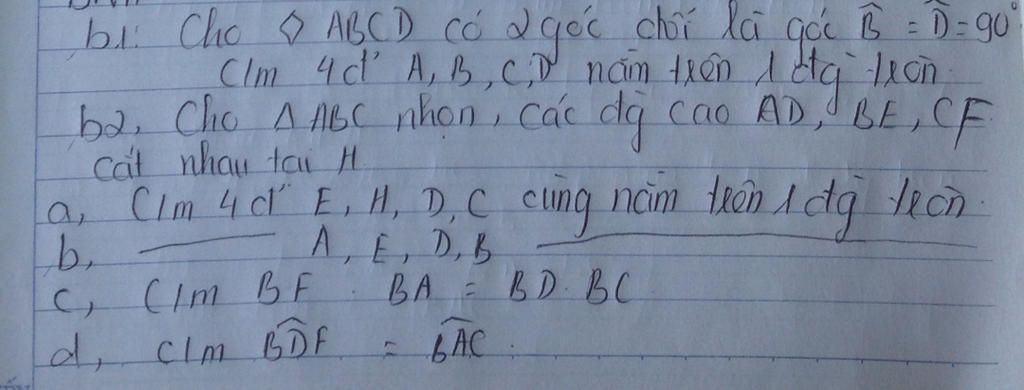 b1: Cho ◇ ABCD có 2 góc đối là góc B̂ = D̂ = 90°
C/m 4 đ' A, B, C, D nằm trên 1 đtg tròn.
b2, Cho Δ ABC nhọn, các đg cao AD, BE, CF
cắt nhau tại H.
a, C/m 4 đ' E, H, D, C cùng nằm trên 1 đtg tròn.
b, ——— A, E, D, B ———
c, C/m BF . BA = BD . BC
d, C/m B̂DF = B̂AC.